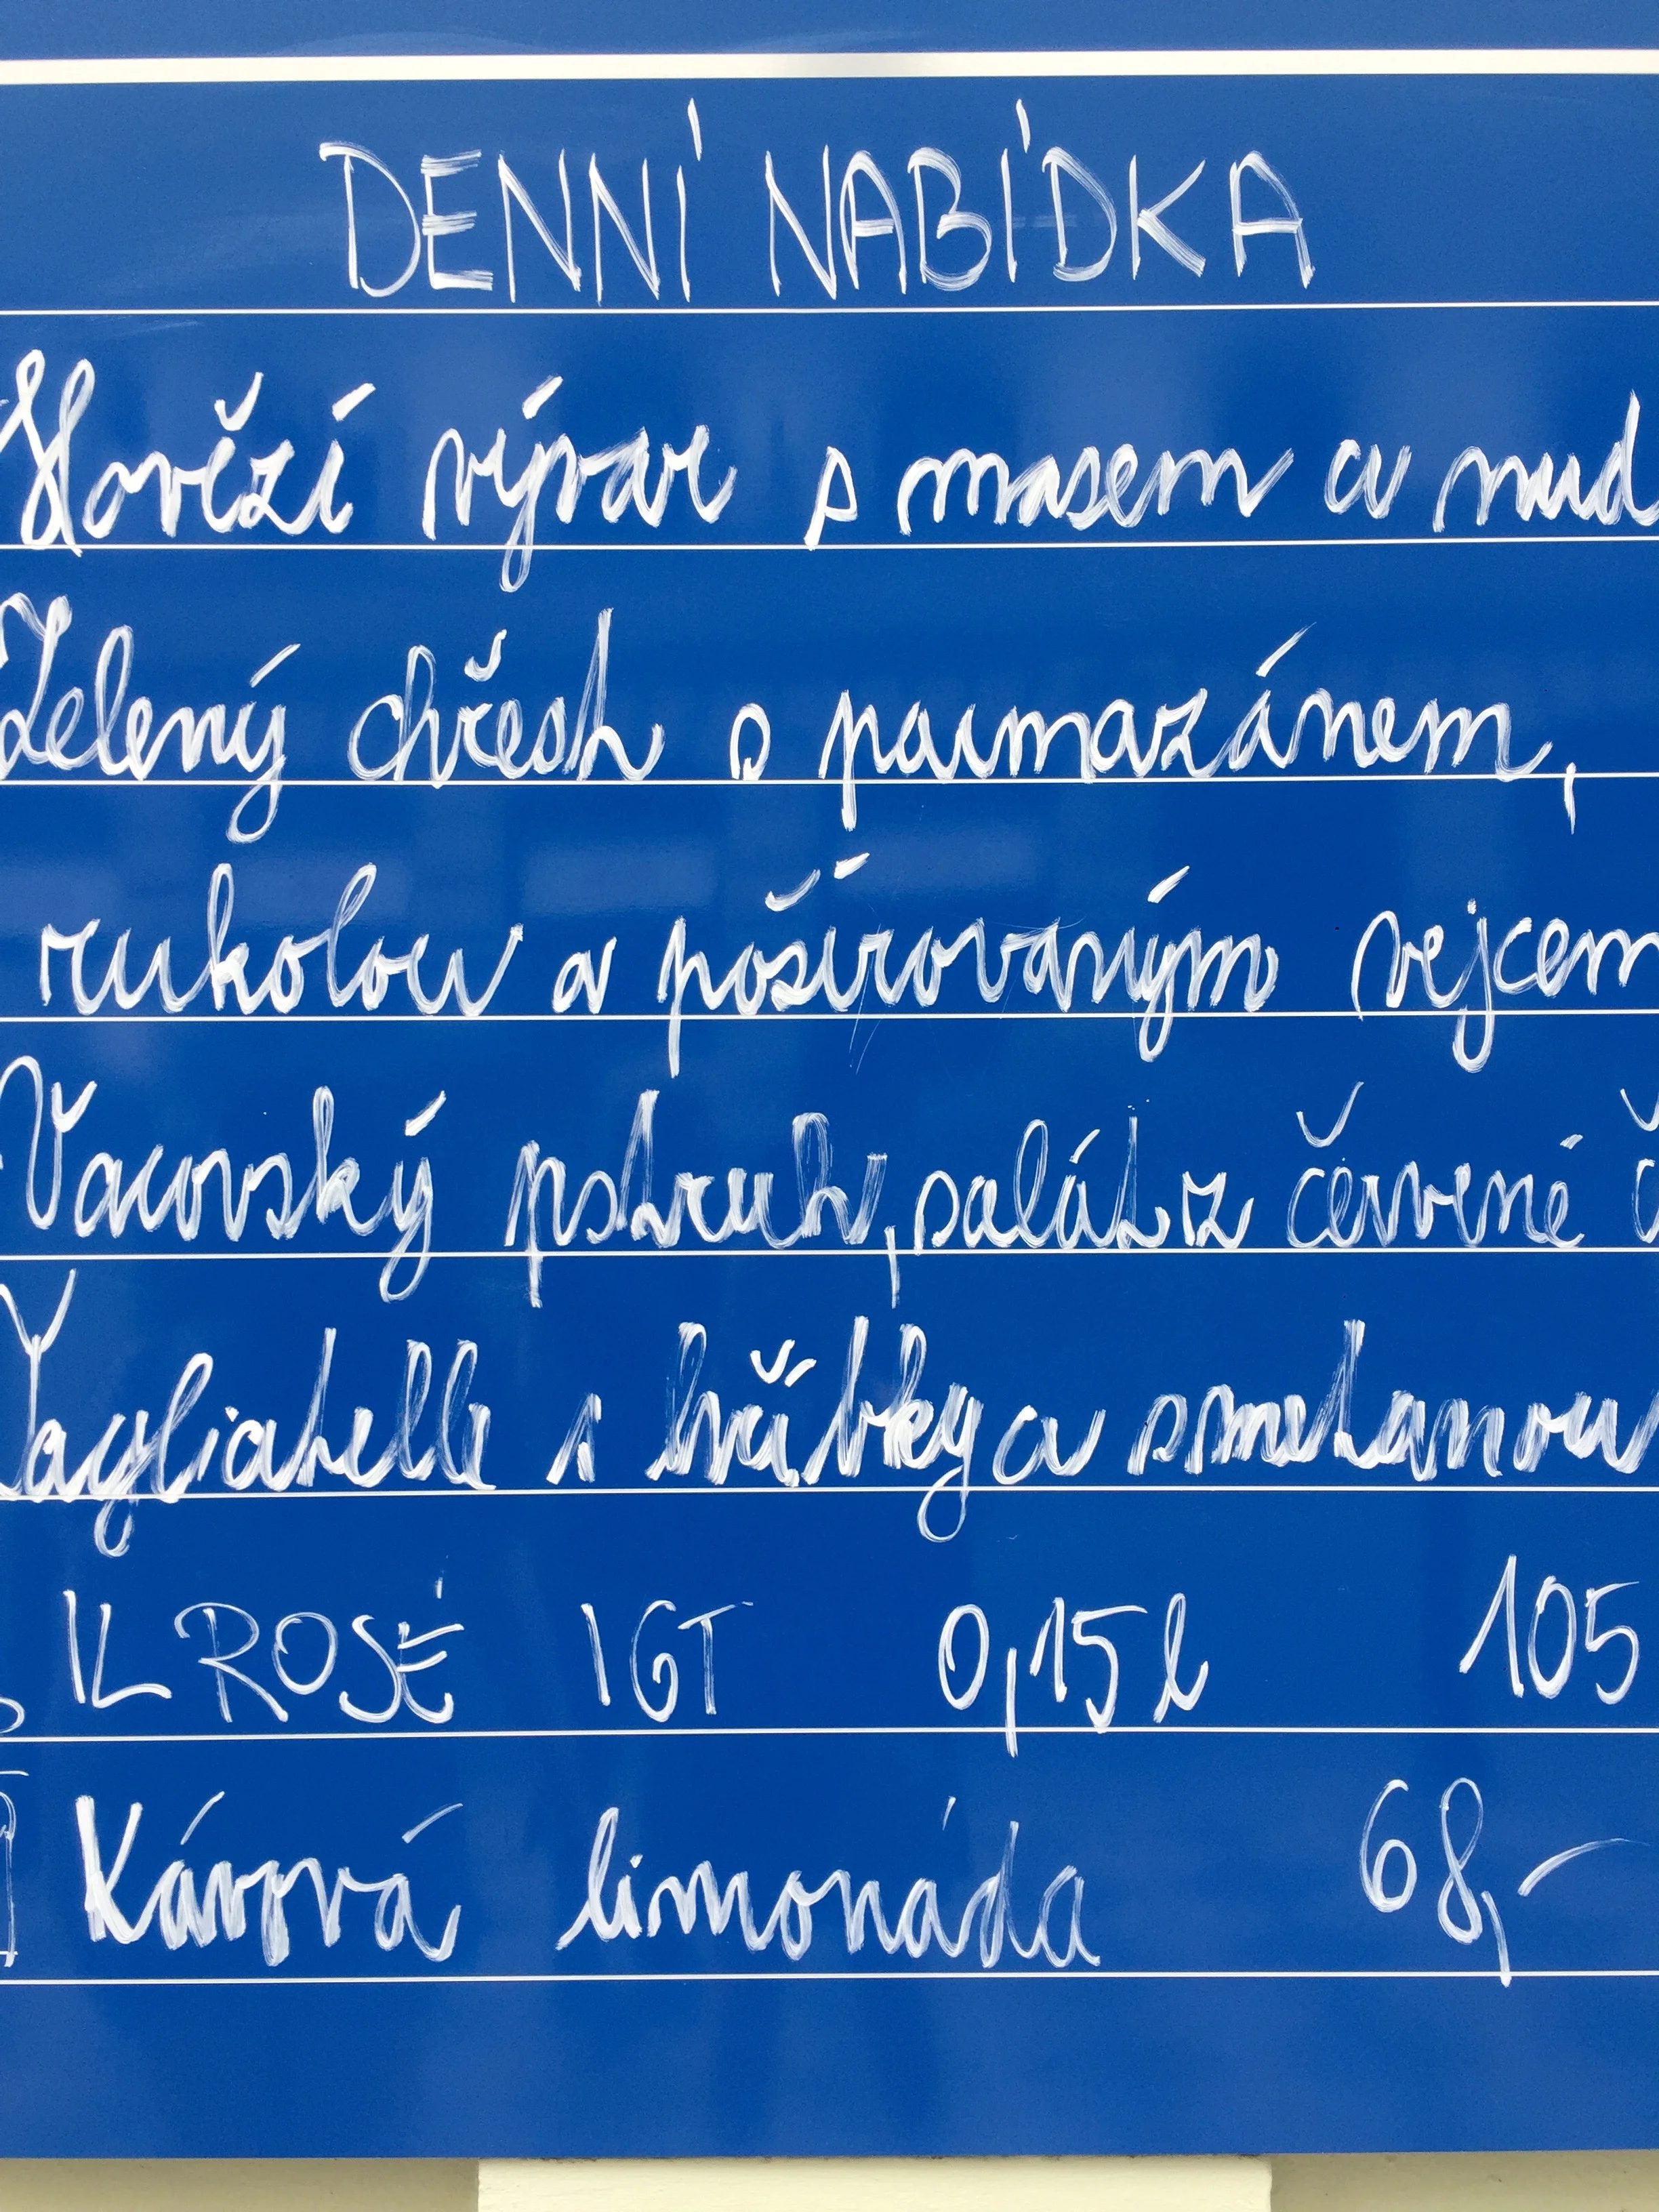 DENNÍ NABÍDKA
Hovězí vývar s masem a nud
Zelený chřest s parmazánem,
rukolou a pošírovaným vejcem
Vacovský pstruh, salát z červené č
Tagliatelle s hříbky a smetanou
IL ROSÉ IGT 0,15 l 105
Kávová limonáda 68,-